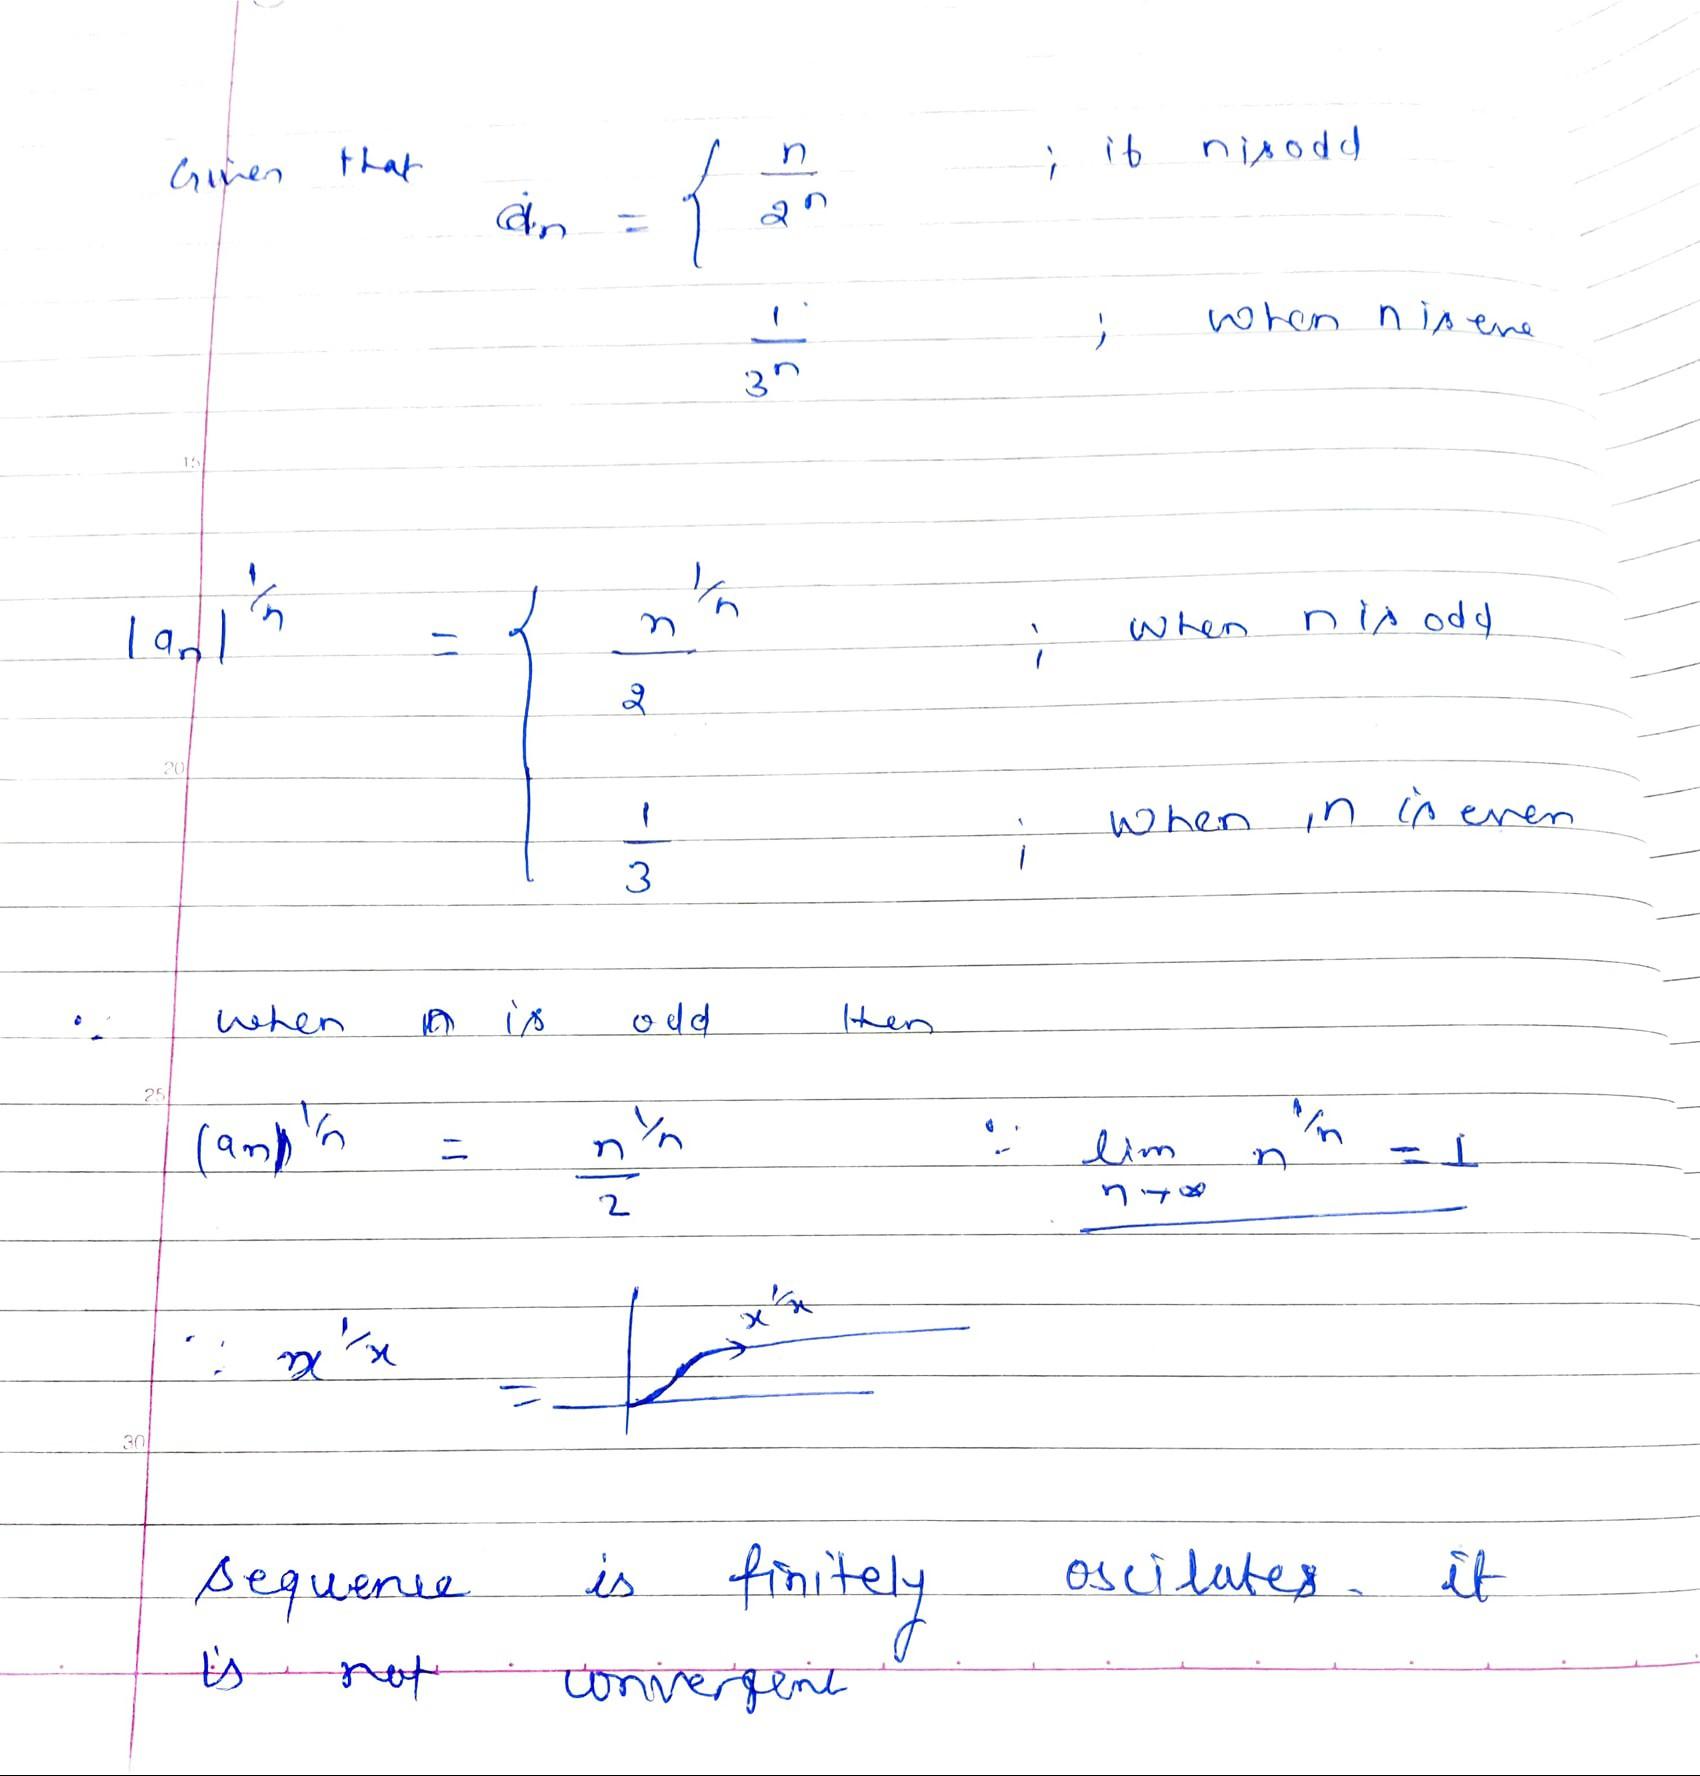 Given that
an = { n/2^n ; if n is odd
1/3^n ; when n is eve
|an|^1/n = { n^1/n / 2 ; when n is odd
1/3 ; when n is even
∴ when n is odd then
(an)^1/n = n^1/n / 2 ∵ lim n→∞ n^1/n = 1
∵ x^1/x = x^1/x
sequence is finitely oscilates. it
is not convergent
15
20
25
30